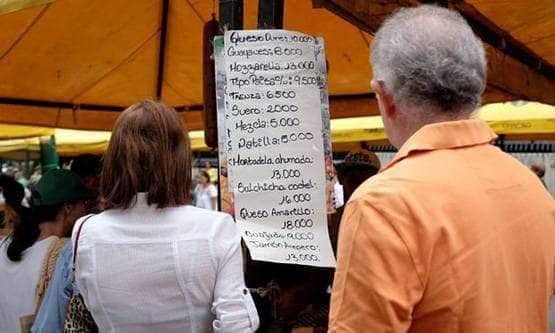 Queso Duro: 10.000
Guayanes: 8.000
Mozzarella: 13.000
Tipo Paisa %: 9.500
Trenza: 6.500
Suero: 2.000
Mezcla: 5.000
5.000
Mortadela ahumada
13.000
Salchicha coctel
16.000
Queso Amarillo
18.000
Cuajada 9.000
Jamón Arepero
13.000